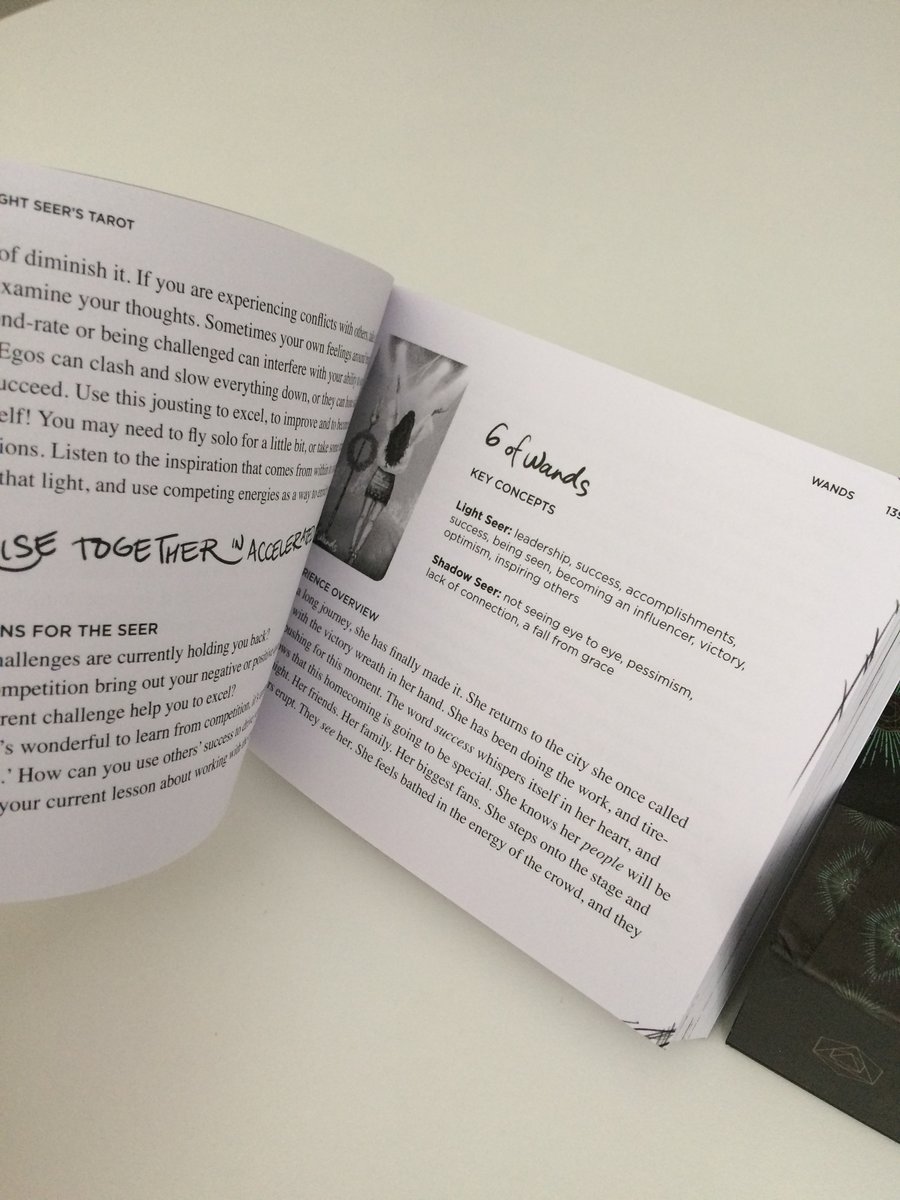 GHT SEER'S TAROT
of diminish it. If you are experiencing conflicts with others,
xamine your thoughts. Sometimes your own feelings
nd-rate or being challenged can interfere with your ability
Egos can clash and slow everything down, or they can
ucceed. Use this jousting to excel, to improve and to
elf! You may need to fly solo for a little bit, or take some
ions. Listen to the inspiration that comes from within
that light, and use competing energies as a way to
ISE TOGETHER IN ACCELERATED
NS FOR THE SEER
hallenges are currently holding you back?
ompetition bring out your negative or positive
rent challenge help you to excel?
's wonderful to learn from competition.
.' How can you use others' success to
your current lesson about working with
WANDS 139
6 of Wands
KEY CONCEPTS
Light Seer: leadership, success, accomplishments,
success, being seen, becoming an influencer, victory,
optimism, inspiring others
Shadow Seer: not seeing eye to eye, pessimism,
lack of connection, a fall from grace
RIENCE OVERVIEW
a long journey, she has finally made it. She returns to the city she once called
with the victory wreath in her hand. She has been doing the work, and tire-
ushing for this moment. The word success whispers itself in her heart, and
ws that this homecoming is going to be special. She knows her people will be
ght. Her friends. Her family. Her biggest fans. She steps onto the stage and
rs erupt. They see her. She feels bathed in the energy of the crowd, and they